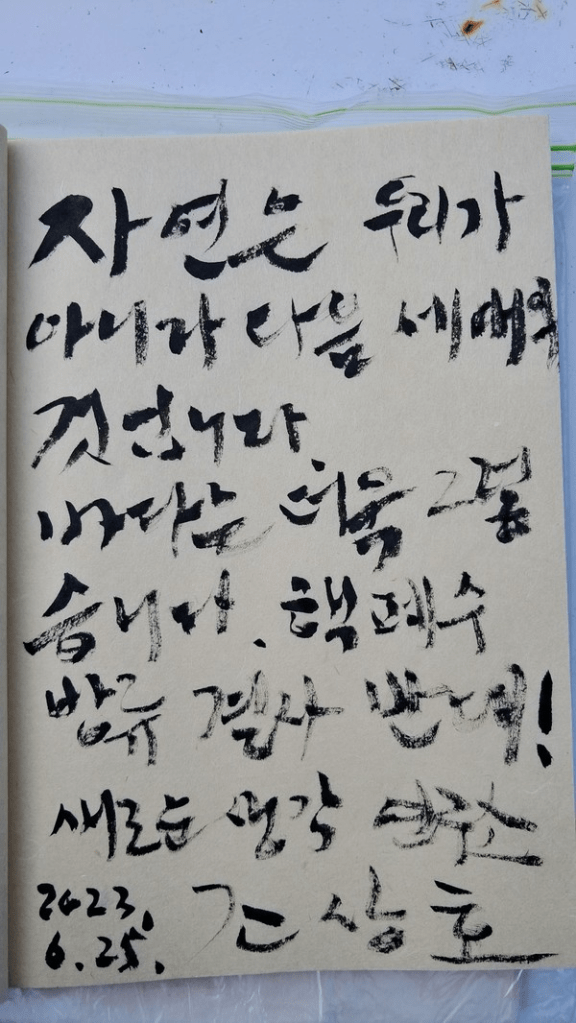 자연은 우리가
아니라 다음 세대의
것입니다
바다는 더욱 그렇
습니다. 핵폐수
방류 결사 반대!
새로운 생각 연구소
2023.
6.25. 상호